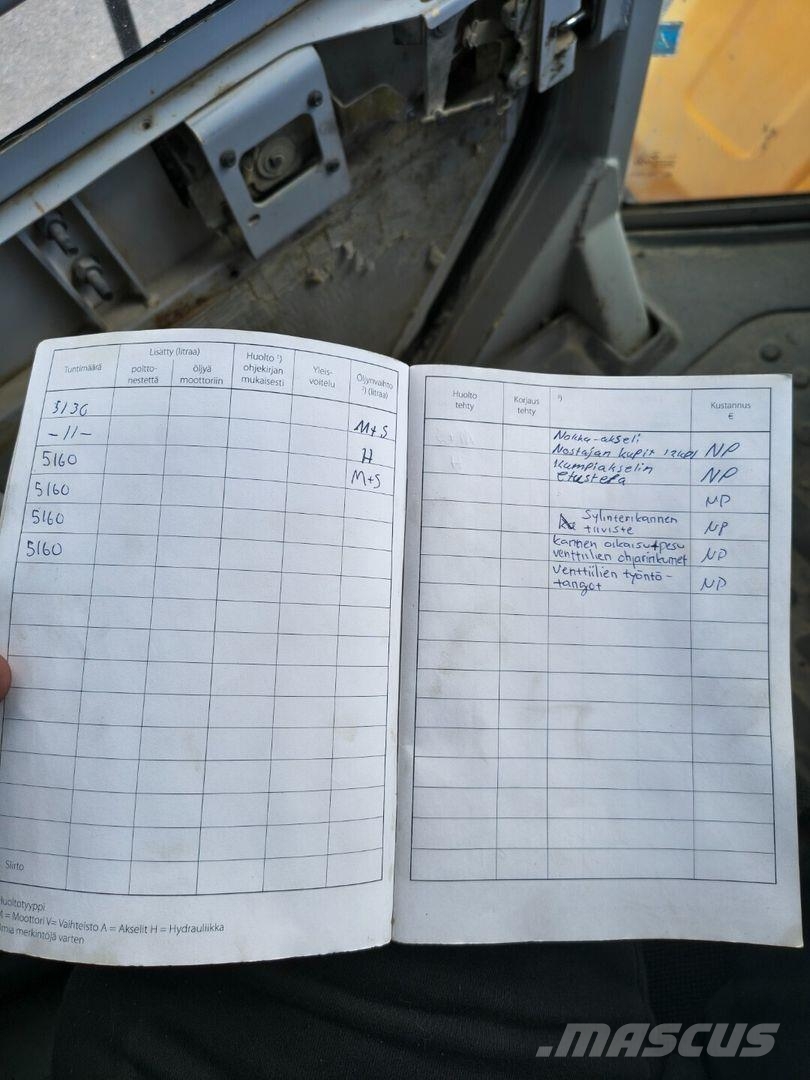 Tuntimäärä
Lisätty (litraa)
poltto-
nestettä
öljyä
moottoriin
Huolto ¹)
ohjekirjan
mukaisesti
Yleis-
voitelu
Öljynvaihto
²) (litraa)
5130
-11- M+S
5160 H
5160 M+S
5160
5160
Siirto
Huoltotyyppi
M = Moottori V= Vaihteisto A = Akselit H = Hydrauliikka
merkintöjä varten
Huolto
tehty
Korjaus
tehty
³)
Kustannus
€
Nokka-akseli
Nostajan kupit 12kpl NP
Kampiakselin
etustefa NP
NP
Sylinterikannen
tiiviste NP
Kannen oikaisu+pesu
venttiilien ohjarinkumet NP
Venttiilien työntö-
tangot NP
MASCUS